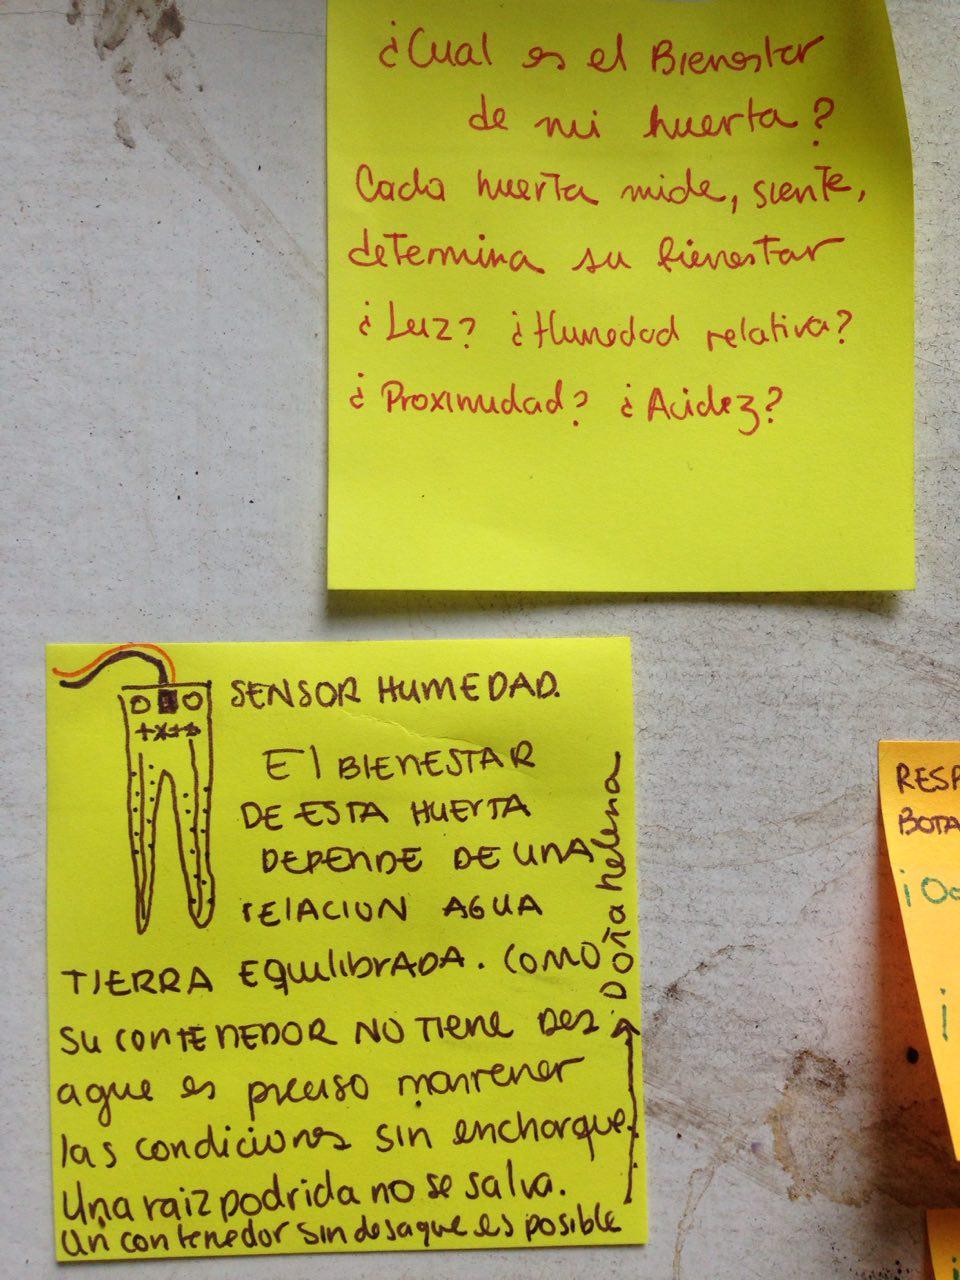 ¿Cual es el Bienestar
de mi huerta?
Cada huerta mide, siente,
determina su bienestar
¿Luz? ¿Humedad relativa?
¿Proximidad? ¿Acidez?
SENSOR HUMEDAD.
El BIENESTAR
DE ESTA HUERTA
DEPENDE DE UNA
RELACION AGUA
TIERRA EQUILIBRADA. COMO
SU CONTENEDOR NO TIENE DES
ague es preciso mantener
las condiciones sin encharque.
Una raiz podrida no se salva.
Un contenedor sin desague es posible
Doña helena
RESP
BOTA